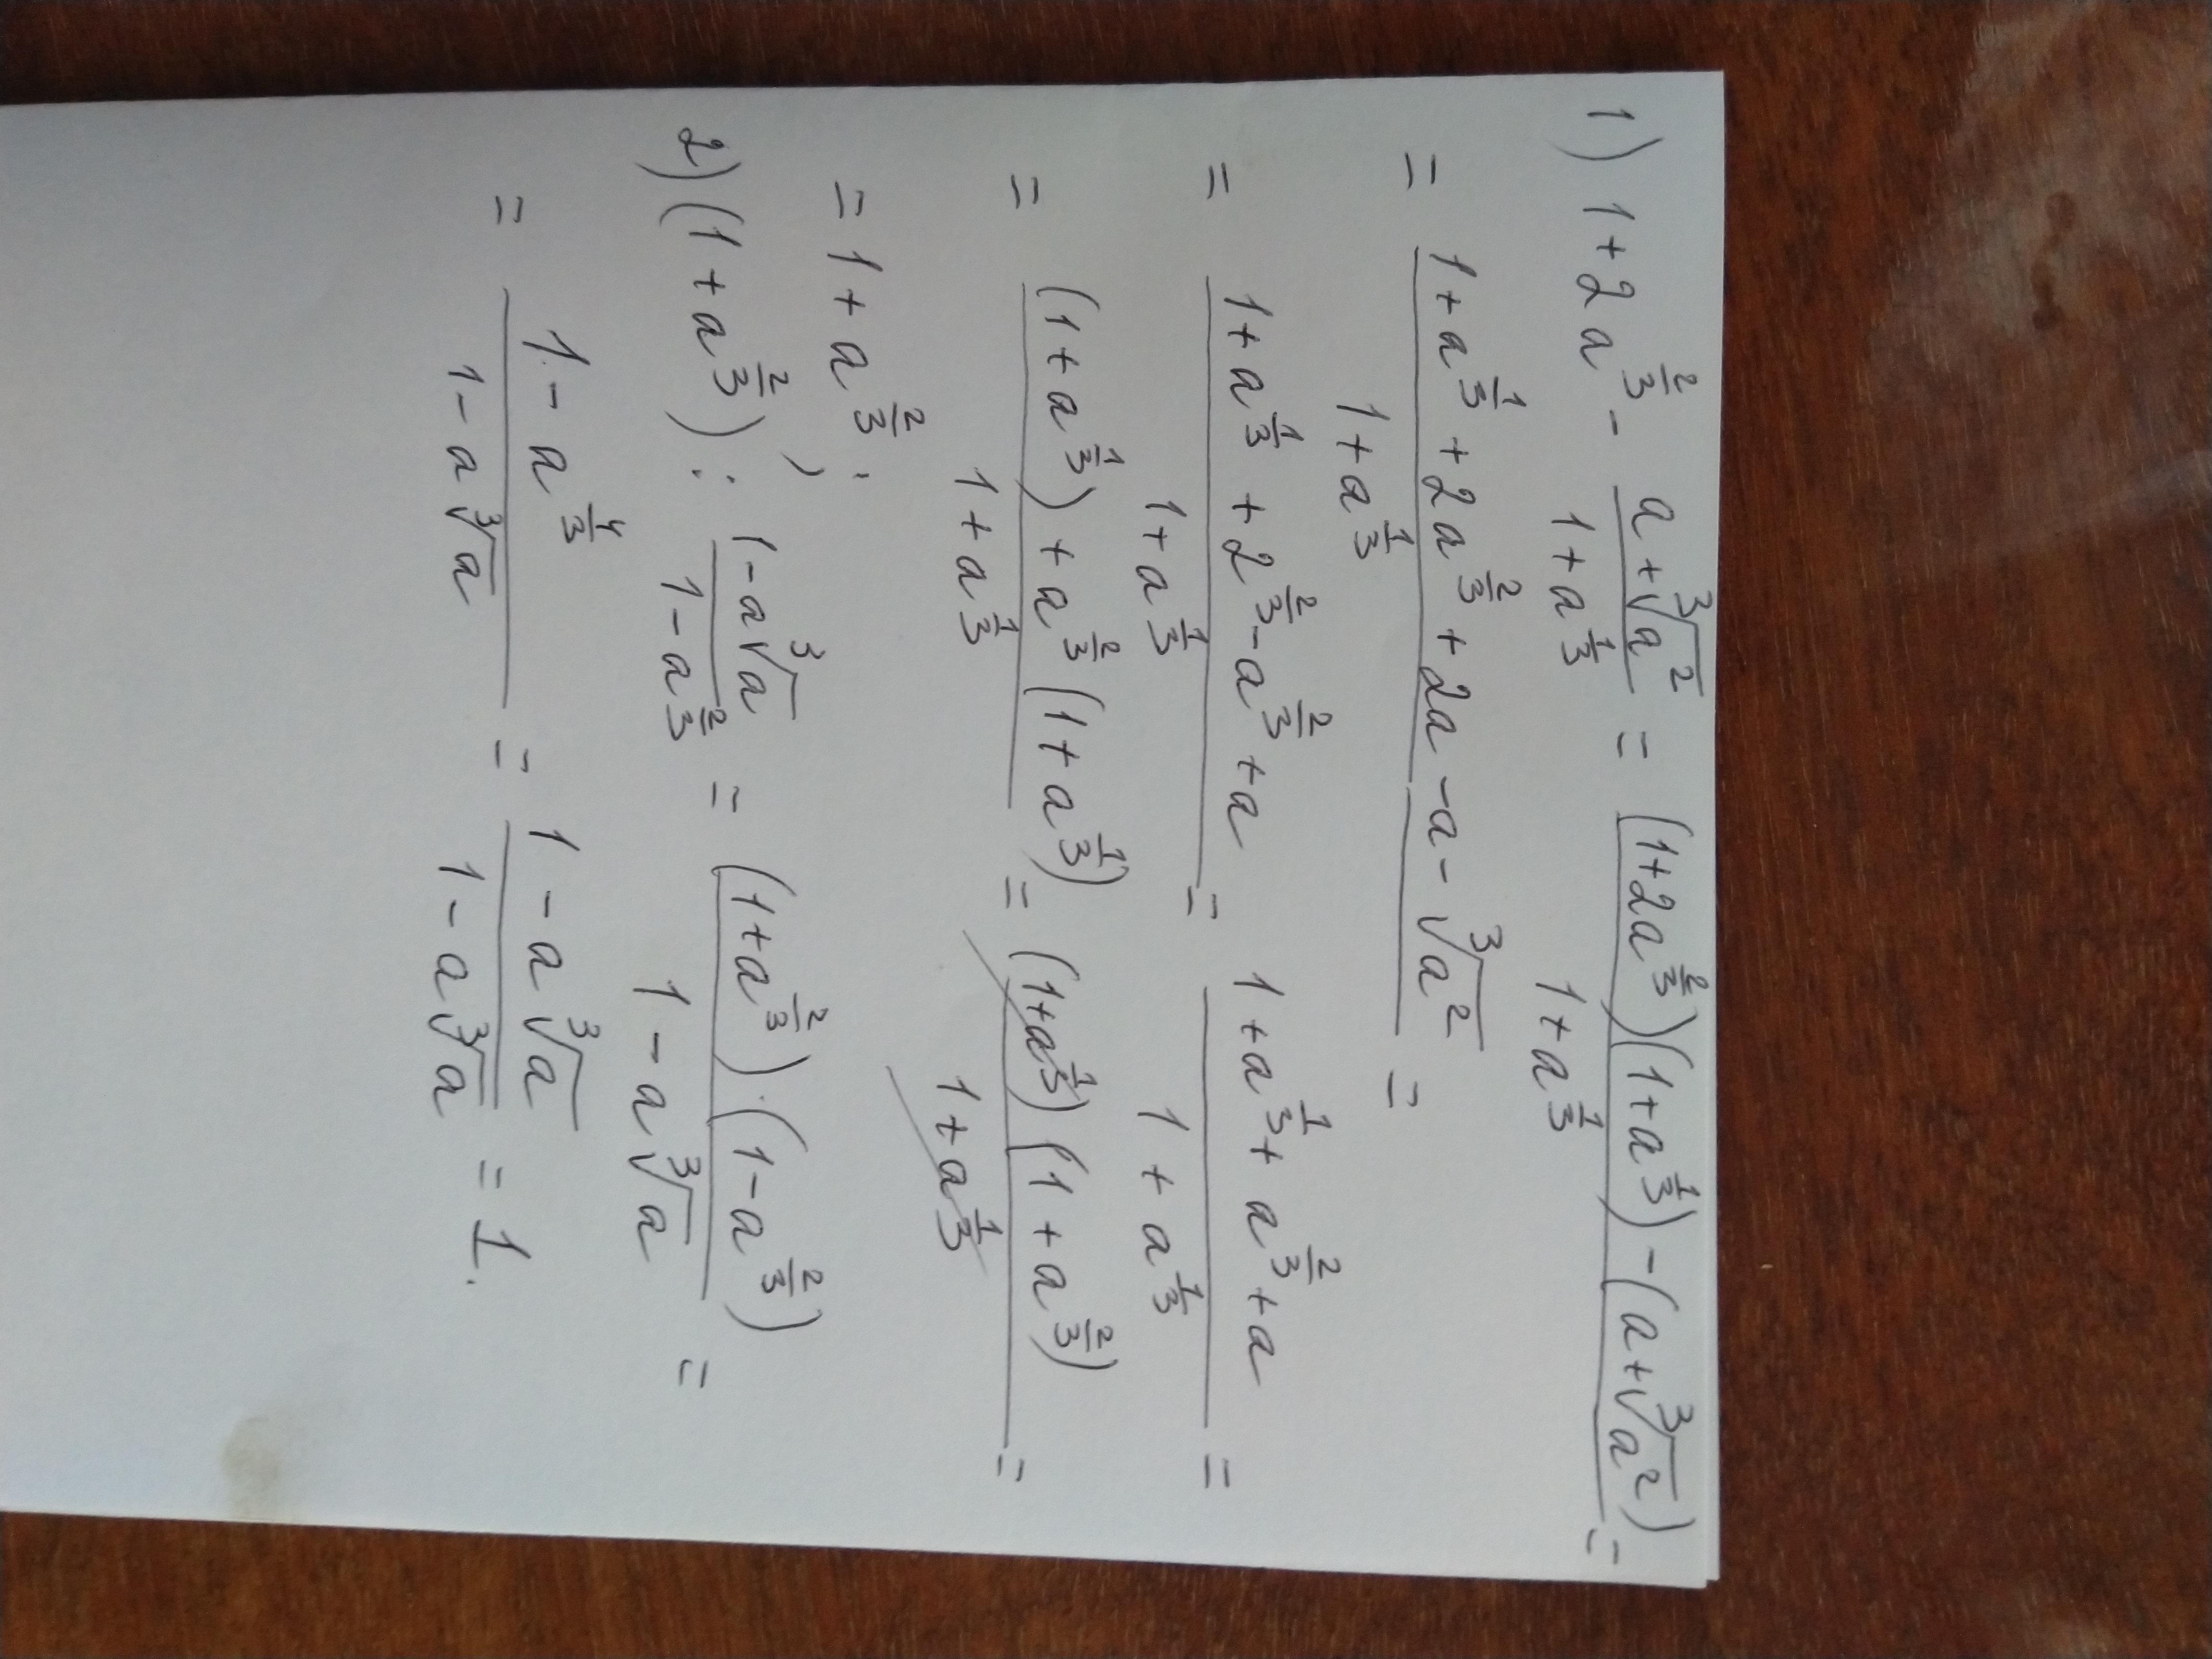 1) 1+2a^{2/3} - \frac{a+\sqrt[3]{a^2}}{1+a^{1/3}} = \frac{(1+2a^{2/3})(1+a^{1/3})-(a+\sqrt[3]{a^2})}{1+a^{1/3}} =
= \frac{1+a^{1/3}+2a^{2/3}+2a-a-\sqrt[3]{a^2}}{1+a^{1/3}} =
= \frac{1+a^{1/3}+2^{2/3}-a^{2/3}+a}{1+a^{1/3}} = \frac{1+a^{1/3}+a^{2/3}+a}{1+a^{1/3}} =
= \frac{(1+a^{1/3})+a^{2/3}(1+a^{1/3})}{1+a^{1/3}} = \frac{(1+a^{1/3})(1+a^{2/3})}{1+a^{1/3}} =
= 1+a^{2/3};
2) (1+a^{2/3}) : \frac{1-a\sqrt[3]{a}}{1-a^{2/3}} = \frac{(1+a^{2/3})\cdot(1-a^{2/3})}{1-a\sqrt[3]{a}} =
= \frac{1-a^{4/3}}{1-a\sqrt[3]{a}} = \frac{1-a\sqrt[3]{a}}{1-a\sqrt[3]{a}} = 1.